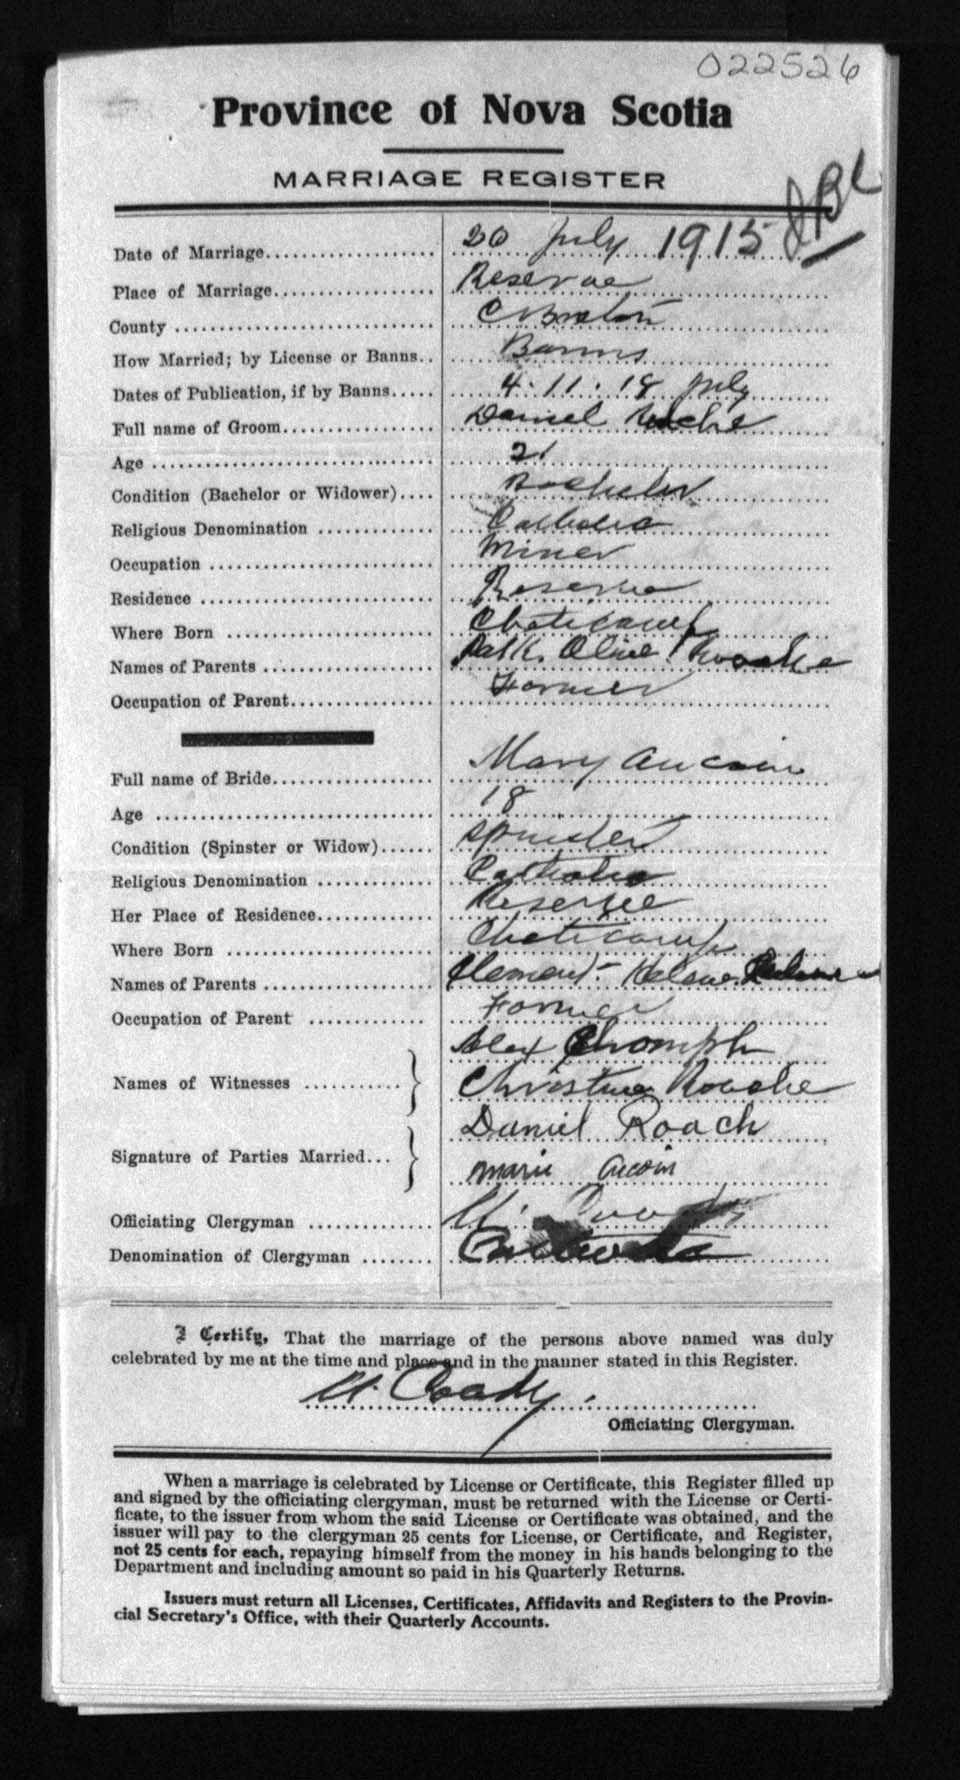 022526
Province of Nova Scotia
MARRIAGE REGISTER
JBL
Date of Marriage 20 July 1915
Place of Marriage Reserve
County C Breton
How Married; by License or Banns Banns
Dates of Publication, if by Banns 4. 11. 18 July
Full name of Groom Daniel Roche
Age 21
Condition (Bachelor or Widower) Bachelor
Religious Denomination Catholic
Occupation Miner
Residence Reserve
Where Born Cheticamp
Names of Parents Patk. Olive
Occupation of Parent Farmer
Full name of Bride Mary Aucoin
Age 18
Condition (Spinster or Widow) Spinster
Religious Denomination Catholic
Her Place of Residence Reserve
Where Born Cheticamp
Names of Parents Clement - Helene
Occupation of Parent Farmer
Alex
Names of Witnesses
Christine Roache
Daniel Roach
Signature of Parties Married
Marie Aucoin
Officiating Clergyman
Denomination of Clergyman
I Certify, That the marriage of the persons above named was duly
celebrated by me at the time and place and in the manner stated in this Register.
Coady
Officiating Clergyman.
When a marriage is celebrated by License or Certificate, this Register filled up
and signed by the officiating clergyman, must be returned with the License or Certi-
ficate, to the issuer from whom the said License or Certificate was obtained, and the
issuer will pay to the clergyman 25 cents for License, or Certificate, and Register,
not 25 cents for each, repaying himself from the money in his hands belonging to the
Department and including amount so paid in his Quarterly Returns.
Issuers must return all Licenses, Certificates, Affidavits and Registers to the Provin-
cial Secretary's Office, with their Quarterly Accounts.